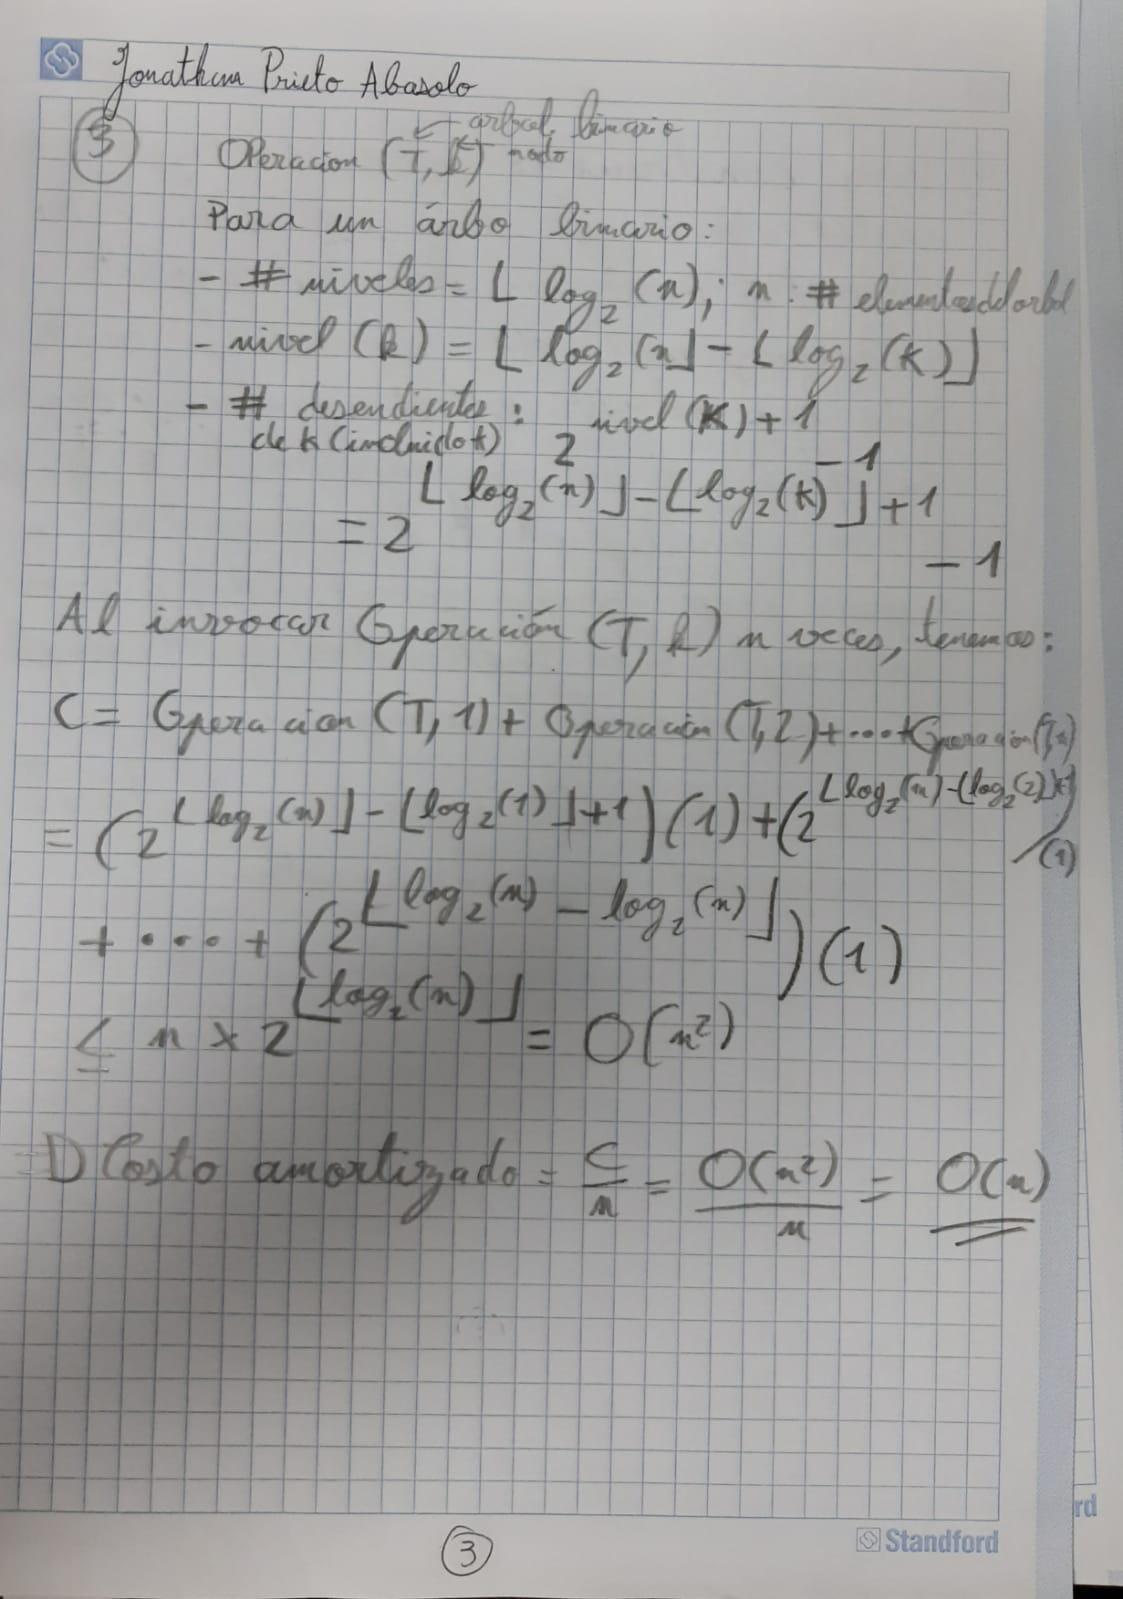 Jonathan Prieto Abasolo
3
← arbol binario
Operacion (T, k) nodo
Para un árbo binario:
- # niveles = ⌊ log₂ (n); n: # elementos del arbol
- nivel (k) = ⌊ log₂ (n⌋ - ⌊ log₂ (k)⌋
- # desendientes : 2^(nivel (k) + 1) - 1
de k (incluido k)
= 2^(⌊ log₂ (n) ⌋ - ⌊ log₂ (k) ⌋ + 1) - 1
Al invocar Operación (T, k) n veces, tenemos:
C = Operacion (T, 1) + Operación (T, 2) + ... + Operacion (T, n)
= (2^(⌊ log₂ (n) ⌋ - ⌊ log₂ (1) ⌋ + 1)) (1) + (2^(⌊ log₂ (n) - (log₂ (2)
(1)
+ ... + (2^(⌊ log₂ (n) - log₂ (n) ⌋)) (1)
≤ n × 2^(⌊ log₂ (n) ⌋) = O(n²)
Costo amortizado = C/n = O(n²)/n = O(n)
3
Standford
rd